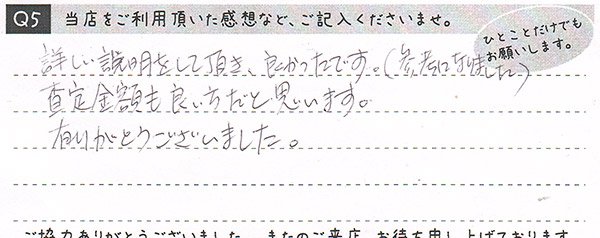 Q5 当店をご利用頂いた感想など、ご記入くださいませ。
ひとことだけでも
お願いします。
詳しい説明をして頂き、良かったです。(参考になりました)
査定金額も良いちだと思います。
有りがとうございました。
ご協力ありがとうございました。またのご来店、お待ち申し上げております。